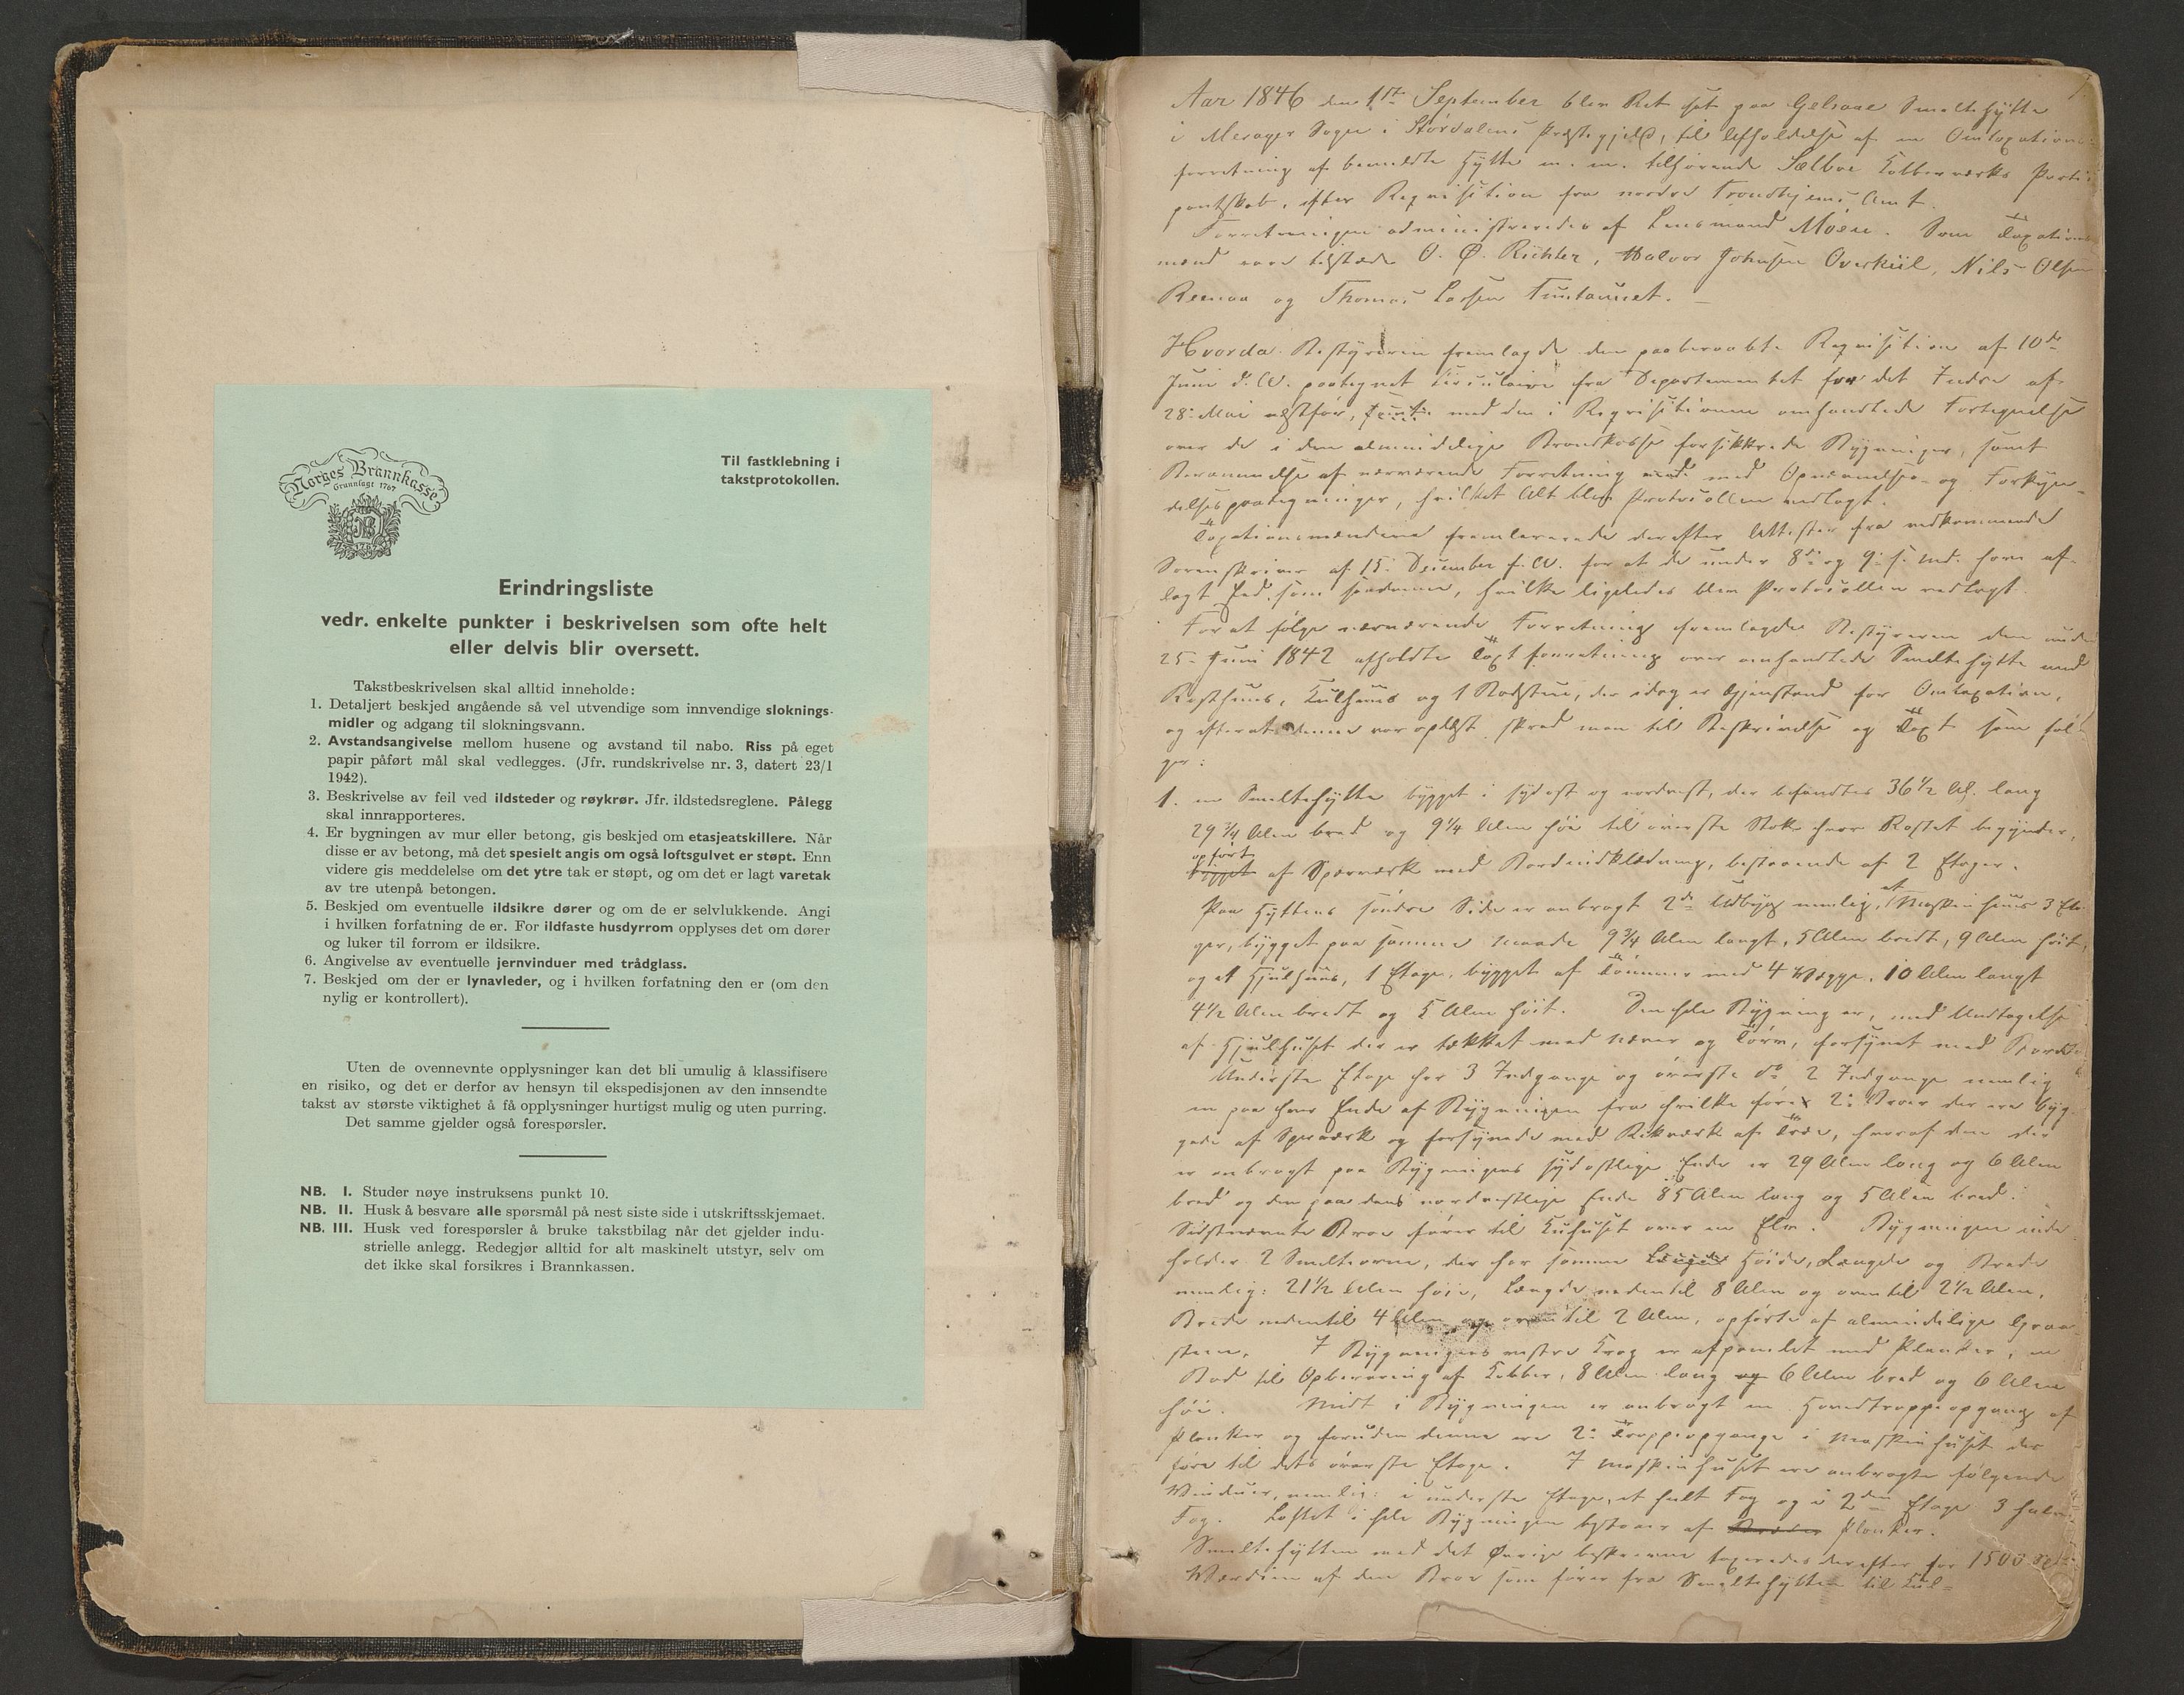 Norges Brannkasse
Grunnlagt 1767
NB
1767
Til fastklebning i
takstprotokollen.
Erindringsliste
vedr. enkelte punkter i beskrivelsen som ofte helt
eller delvis blir oversett.
Takstbeskrivelsen skal alltid inneholde:
1. Detaljert beskjed angående så vel utvendige som innvendige sloknings-
midler og adgang til slokningsvann.
2. Avstandsangivelse mellom husene og avstand til nabo. Riss på eget
papir påført mål skal vedlegges. (Jfr. rundskrivelse nr. 3, datert 23/1
1942).
3. Beskrivelse av feil ved ildsteder og røykrør. Jfr. ildstedsreglene. Pålegg
skal innrapporteres.
4. Er bygningen av mur eller betong, gis beskjed om etasjeatskillere. Når
disse er av betong, må det spesielt angis om også loftsgulvet er støpt. Enn
videre gis meddelelse om det ytre tak er støpt, og om det er lagt varetak
av tre utenpå betongen.
5. Beskjed om eventuelle ildsikre dører og om de er selvlukkende. Angi
i hvilken forfatning de er. For ildfaste husdyrrom opplyses det om dører
og luker til forrom er ildsikre.
6. Angivelse av eventuelle jernvinduer med trådglass.
7. Beskjed om der er lynavleder, og i hvilken forfatning den er (om den
nylig er kontrollert).
Uten de ovennevnte opplysninger kan det bli umulig å klassifisere
en risiko, og det er derfor av hensyn til ekspedisjonen av den innsendte
takst av største viktighet å få opplysninger hurtigst mulig og uten purring.
Det samme gjelder også forespørsler.
NB. I. Studer nøye instruksens punkt 10.
NB. II. Husk å besvare alle spørsmål på nest siste side i utskriftsskjemaet.
NB. III. Husk ved forespørsler å bruke takstbilag når det gjelder indu-
strielle anlegg. Redegjør alltid for alt maskinelt utstyr, selv om
det ikke skal forsikres i Brannkassen.
Aar 1846 den 1ste September blev Ret sat paa Gelsaae Smeltehytte
i Meragers Sogn i Størdalens Præstegjeld, til Afholdelse af en Omtaxations
forretning af bemeldte Hytte m. m. tilhørende Sælboe Kobberværks Parti-
pantskab, efter Reqvisition fra nordre Trondhjems Amt.
Forretningen administreredes af Lensmand Moen. Som Taxations
mænd vare tilstæde O. Ø. Richter, Halvor Johnsen Overkiil, Nils Olsen
Reenaa og Thomas Larsen Funtaunet. –
Hvorda Bestyreren fremlagde den paaberaabte Reqvisition af 10de
Juni d. A. paategnet Circulaire fra Departementet for det Indre af
28. Mai næstfør, med den i Reqvisitionen omhandlede Fortegnelse
over de i den almindelige Brandkasse forsikkrede Bygninger, samt
Berammelse af nærværende Forretning med Opnævnelses- og Forkyn-
delsespaategninger, hvilket Alt blev Protocollen vedlagt.
Taxationsmændene fremleverede derefter Attester fra vedkommende
Sorenskriver af 15. December f. A. for at de under 8de og 9. s. Md. have af-
lagt Eed som saadanne, hvilke ligeledes blev Protocollen vedlagt.
For at følge nærværende Forretning fremlagde Bestyreren den under
25. Juni 1842 afholdte Taxtforretning over omhandlede Smeltehytte med
Rosthuus, Kulhuus og 1 Badstue, der idag er Gjenstand for Omtaxation,
og efterat denne var oplæst, skred man til Beskrivelse og Taxt som føl-
ger:
1. en Smeltehytte bygget i sydost og nordvest, der befandtes 36 1/2 Al. lang
29 3/4 Alen bred og 9 1/4 Alen høi til øverste Stok hvor Røstet begynder,
opført
bygget af Spærværk med Bordindklædning, bestaaende af 2 Etager.
Paa Hyttens søndre Side er anbragt 2de Udbyg nemlig, et Maskinhuus 3 Eta-
ger, bygget paa samme Maade 9 3/4 Alen langt, 5 Alen bredt, 9 Alen høit,
og et Hjulhuus, 1 Etage, bygget af Tømmer med 4 Vægge, 10 Alen langt
4 1/2 Alen bredt og 5 Alen høit. Den hele Bygning er, med Undtagelse
af Hjulhuset der er tækket med Næver og Tørv, forsynet med Bord
Underste Etage har 3 Indgange og øverste do 2 Indgange nemlig
en paa hver Ende af Bygningen fra hvilke fører 2. Broer der ere byg-
gede af Sperværk og forsynede med Rekværk af Træ, hvoraf den der
er anbragt paa Bygningens sydostlige Ende er 29 Alen lang og 6 Alen
bred og den paa dens nordvestlige Ende 85 Alen lang og 5 Alen bred.
Sidstnævnte Broe fører til Kulhuset over en Elv. Bygningen inde-
holder 2 Smelteovne, der har samme Længde Høide, Længde og Brede
nemlig: 21 1/2 Alen høie, Længde nedentil 8 Alen og oventil 2 1/2 Alen,
Brede nedentil 4 Alen og oventil 2 Alen, opførte af almindelige Graa-
steen. I Bygningens vestre Krog er afpanelet med Planker, en
Bod til Opbevaring af Kobber, 8 Alen lang og 6 Alen bred og 6 Alen
høi. Midt i Bygningen er anbragt en Hovedtrappeopgang af
Planker og foruden denne ere 2. Trappeopgange i Maskinhuset der
føre til dets øverste Etage. I Maskinhuset ere anbragte følgende
Vinduer, nemlig: i underste Etage, et heelt Fag og i 2den Etage 3 halve
Fag. Loftet i hele Bygningen bestaar af Planker.
Smeltehytten med det Øvrige beskrevne taxeredes derefter for 1500
Værdien af den Broe som fører fra Smeltehytten til Kul=